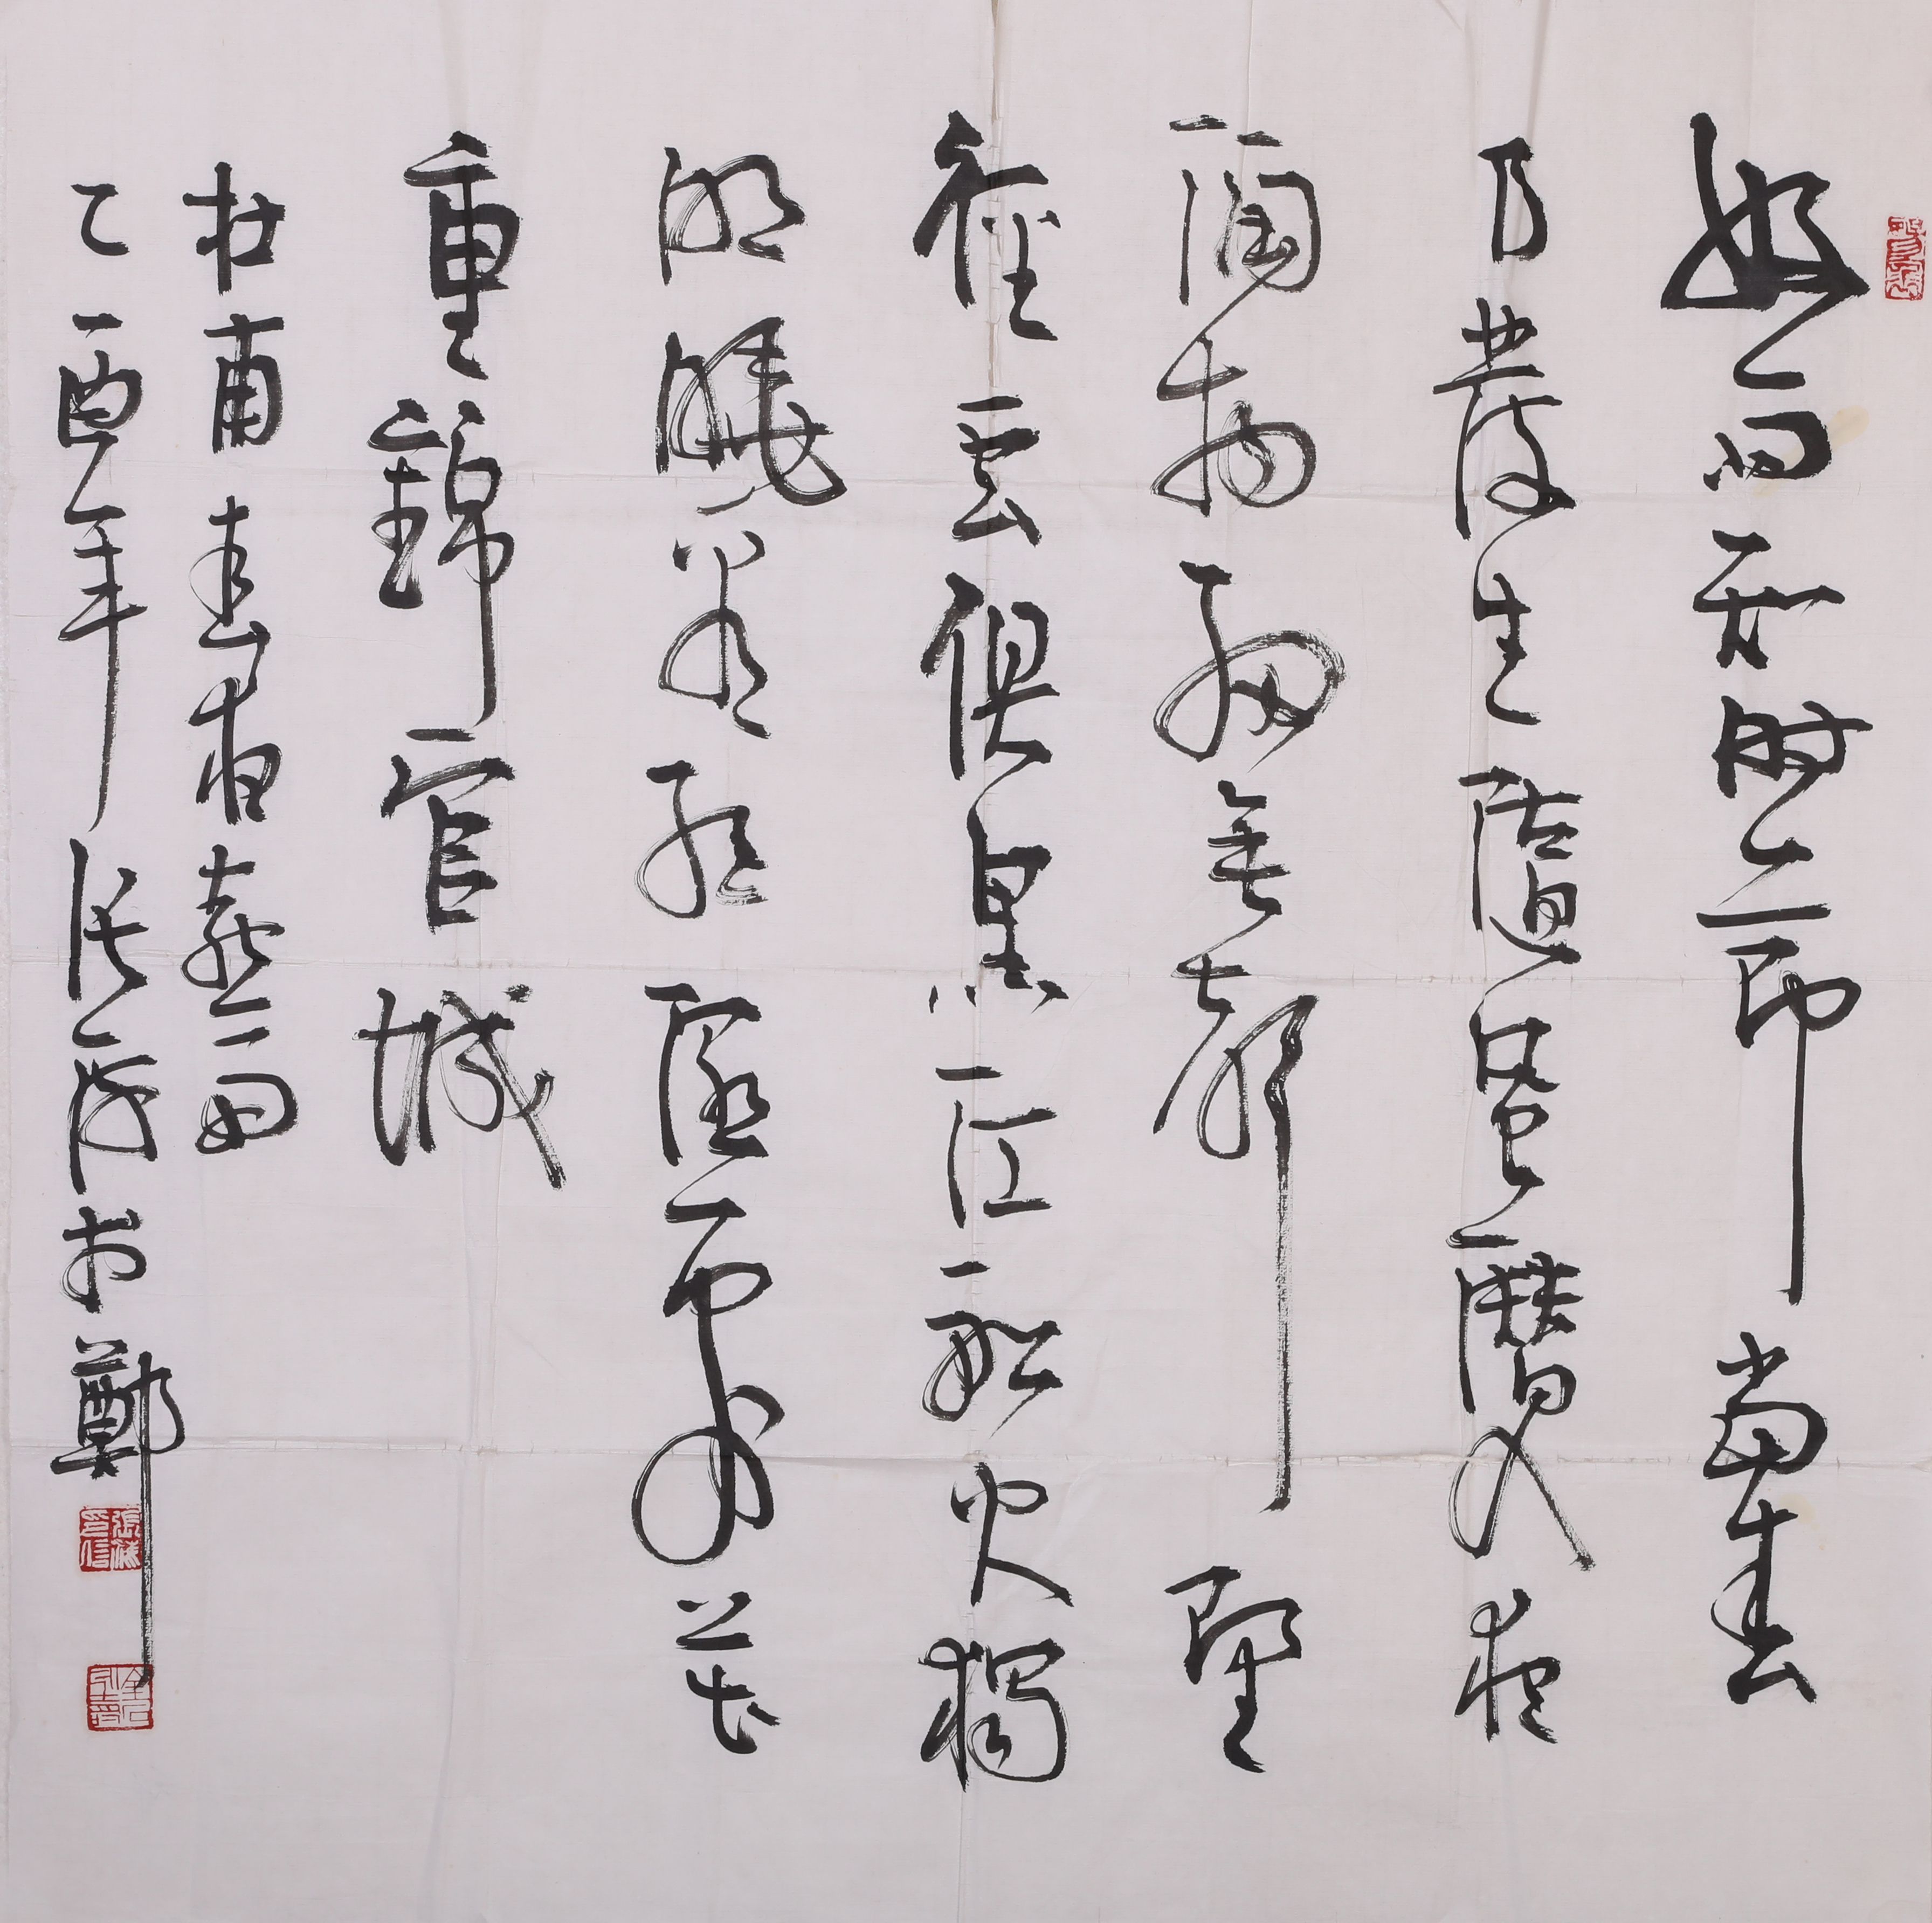 好雨知時節當春
乃發生隨風潛入夜
潤物細無聲野
徑雲俱黑江船火獨
明曉看紅濕處花
重錦官城
杜甫春夜喜雨
乙酉年張书鄭